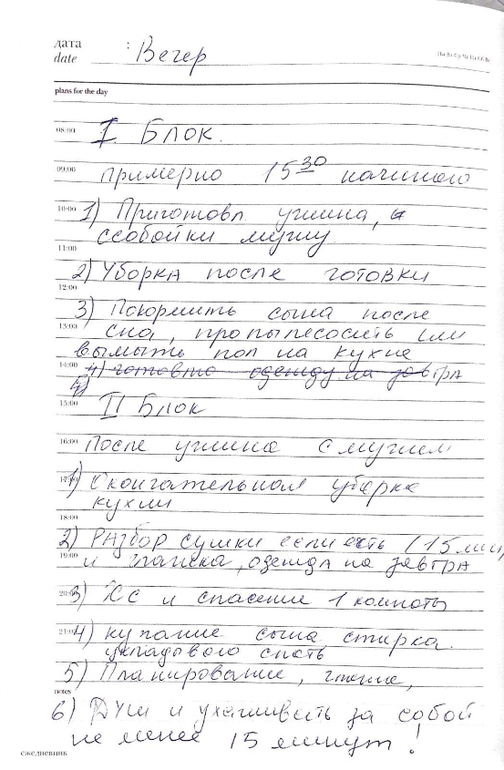 дата : Вечер
date
plans for the day
08:00 I Блок.
09:00 примерно 15 30 начинаю
10:00 1) Приготовл ужина, и
ссобойки мужу
11:00
2) Уборка после готовки
12:00
3) Покормить сына после
13:00 сна, пропылесосить или
вымыть пол на кухне
14:00 4) готовлю одежду на завтра
4)
15:00 II Блок
16:00 После ужина с мужем
17:00 1) Окончательная уборка
кухни
18:00
2) Разбор сушки если есть (15 мин
19:00 и глажка, одежда на завтра
20:00 3) ХС и спасение 1 комнаты
21:00 4) купание сына стирка
укладываю спать
5) Планирование, чтение,
notes
6) Душ и ухаживать за собой
не менее 15 минут!
ежедневник